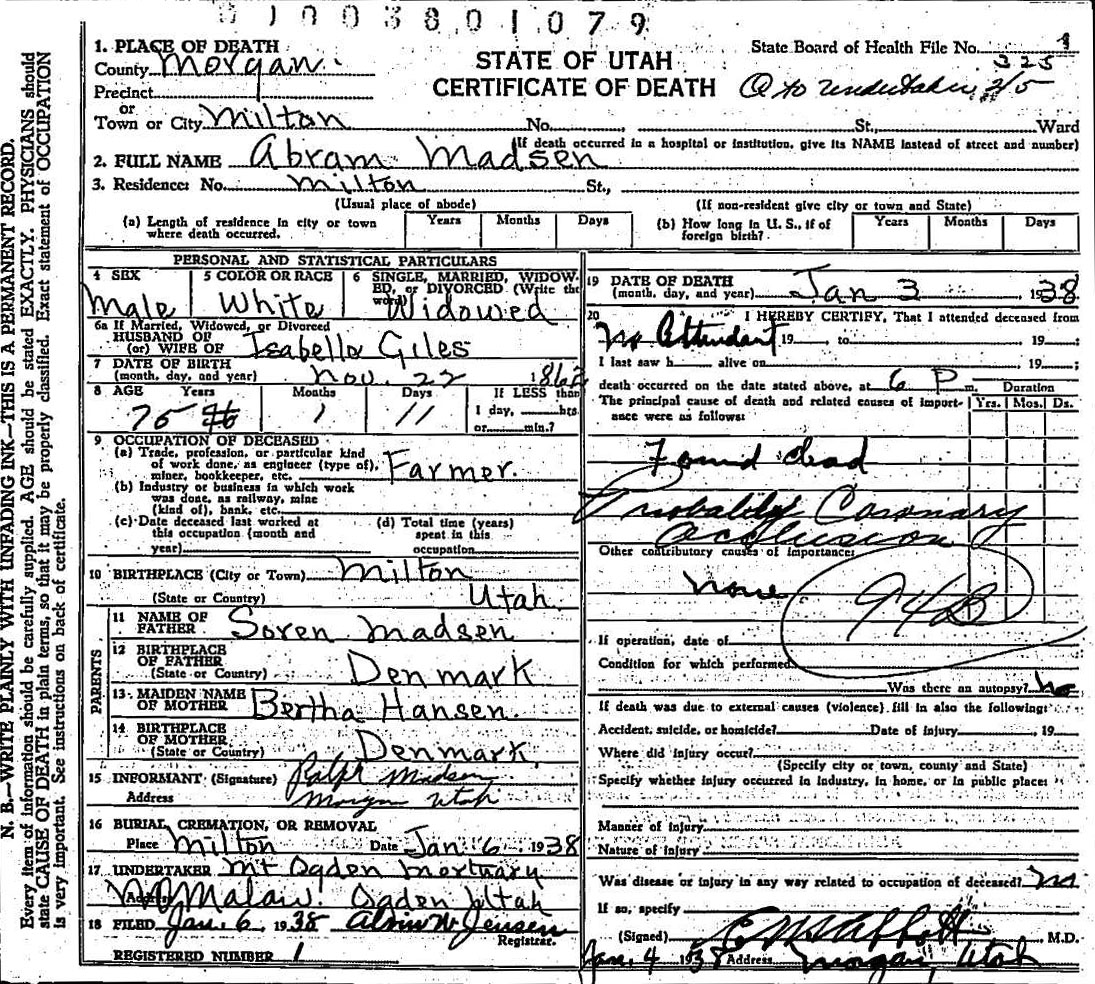 01003801079
N. B.—WRITE PLAINLY WITH UNFADING INK—THIS IS A PERMANENT RECORD.
Every item of information should be carefully supplied. AGE should be stated EXACTLY. PHYSICIANS should
state CAUSE OF DEATH in plain terms, so that it may be properly classified. Exact statement of OCCUPATION
is very important. See instructions on back of certificate.
STATE OF UTAH
CERTIFICATE OF DEATH
State Board of Health File No. 4
325
to undertaker 2/5
1. PLACE OF DEATH
County Morgan
Precinct
or
Town or City Milton No. St., Ward
(If death occurred in a hospital or institution, give its NAME instead of street and number)
2. FULL NAME Abram Madsen
3. Residence: No. Milton St.,
(Usual place of abode) (If non-resident give city or town and State)
(a) Length of residence in city or town
where death occurred. Years Months Days
(b) How long in U. S., if of
foreign birth? Years Months Days
PERSONAL AND STATISTICAL PARTICULARS
4 SEX 5 COLOR OR RACE 6 SINGLE, MARRIED, WIDOW-
ED, or DIVORCED (Write the
word)
Male White Widowed
6a If Married, Widowed, or Divorced
HUSBAND OF
(or) WIFE OF Isabella Giles
7 DATE OF BIRTH
(month, day, and year) Nov. 22 1862
8 AGE Years Months Days If LESS than
75 1 11 1 day, hrs.
or min.?
9 OCCUPATION OF DECEASED
(a) Trade, profession, or particular kind
of work done, as engineer (type of),
miner, bookkeeper, etc. Farmer.
(b) Industry or business in which work
was done, as railway, mine
(kind of), bank, etc.
(c) Date deceased last worked at
this occupation (month and
year)
(d) Total time (years)
spent in this
occupation
10 BIRTHPLACE (City or Town) Milton
(State or Country) Utah
PARENTS
11 NAME OF
FATHER Soren Madsen
12 BIRTHPLACE
OF FATHER
(State or Country) Denmark
13 MAIDEN NAME
OF MOTHER Bertha Hansen.
14 BIRTHPLACE
OF MOTHER
(State or Country) Denmark
15 INFORMANT (Signature) Ralph Madsen
Address Morgan Utah
16 BURIAL, CREMATION, OR REMOVAL
Place Milton Date Jan. 6 1938
17 UNDERTAKER Mt Ogden Mortuary
Address Malan Ogden Utah
18 FILED Jan. 6 1938 Alvin W. Jensen
Registrar.
REGISTERED NUMBER 1
19 DATE OF DEATH
(month, day, and year) Jan 3 1938
20 I HEREBY CERTIFY, That I attended deceased from
No Attendant 19 , to 19 ;
I last saw h alive on 19 ;
death occurred on the date stated above, at 6 P m. Duration
The principal cause of death and related causes of import-
ance were as follows: Yrs. Mos. Ds.
Found dead
Probably Coronary
Occlusion
Other contributory causes of importance:
None
94B
If operation, date of
Condition for which performed
Was there an autopsy? No
If death was due to external causes (violence) fill in also the following:
Accident, suicide, or homicide? Date of injury , 19
Where did injury occur?
(Specify city or town, county and State)
Specify whether injury occurred in industry, in home, or in public place:
Manner of injury
Nature of injury
Was disease or injury in any way related to occupation of deceased? No
If so, specify
(Signed) M.D.
Jan. 4 1938 Address Morgan, Utah